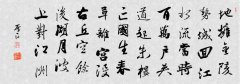 地擁金陵
勢城回江
水流當時
百萬户夾
道起朱樓
亡國生春
草離宮沒
古丘空餘
後湖月波
上對江洲